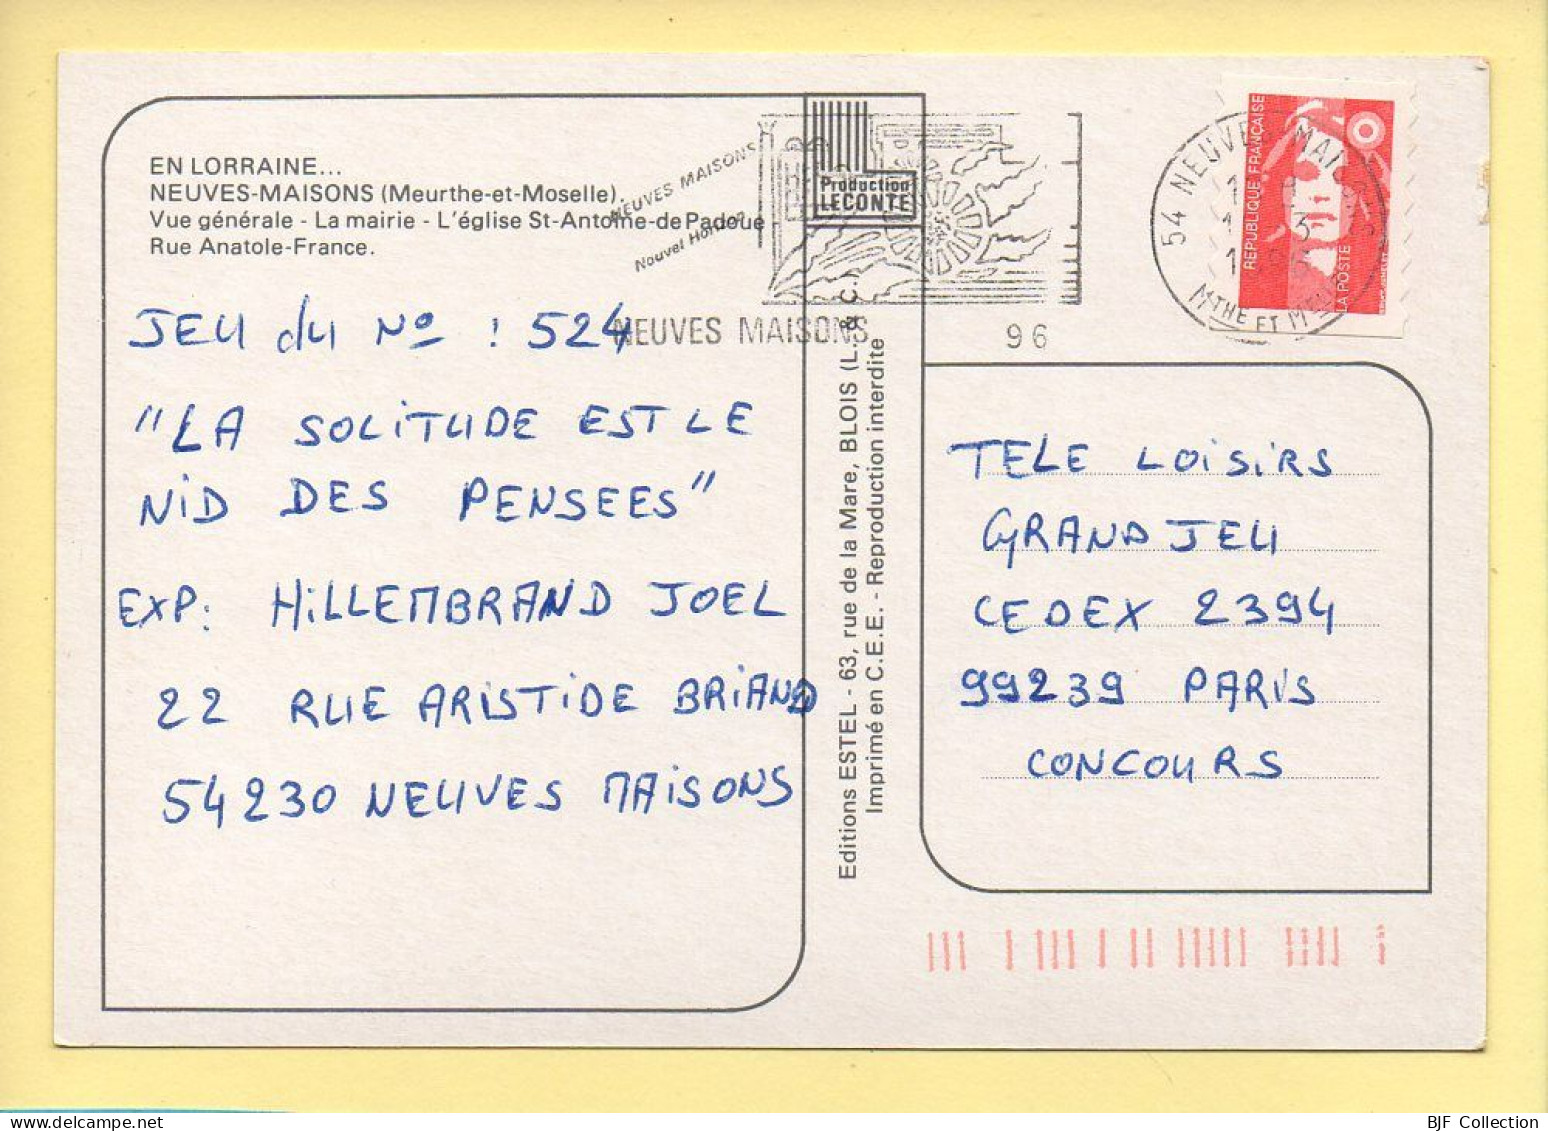 EN LORRAINE...
NEUVES-MAISONS (Meurthe-et-Moselle).
Vue générale - La mairie - L'église St-Antoine-de Padoue -
Rue Anatole-France.
NEUVES MAISONS
Nouvel Horizon
NEUVES MAISONS
96
Production
LECONTE
54 NEUVES MAISONS
MTHE ET M
REPUBLIQUE FRANÇAISE
LA POSTE
JEU du No : 524
"LA SOLITUDE EST LE
NID DES PENSEES"
EXP: HILLEMBRAND JOEL
22 RUE ARISTIDE BRIAND
54230 NEUVES MAISONS
Editions ESTEL - 63, rue de la Mare, BLOIS (L. & C.)
Imprimé en C.E.E. - Reproduction interdite
TELE LOISIRS
GRAND JEU
CEDEX 2394
99239 PARIS
CONCOURS
BJF Collection